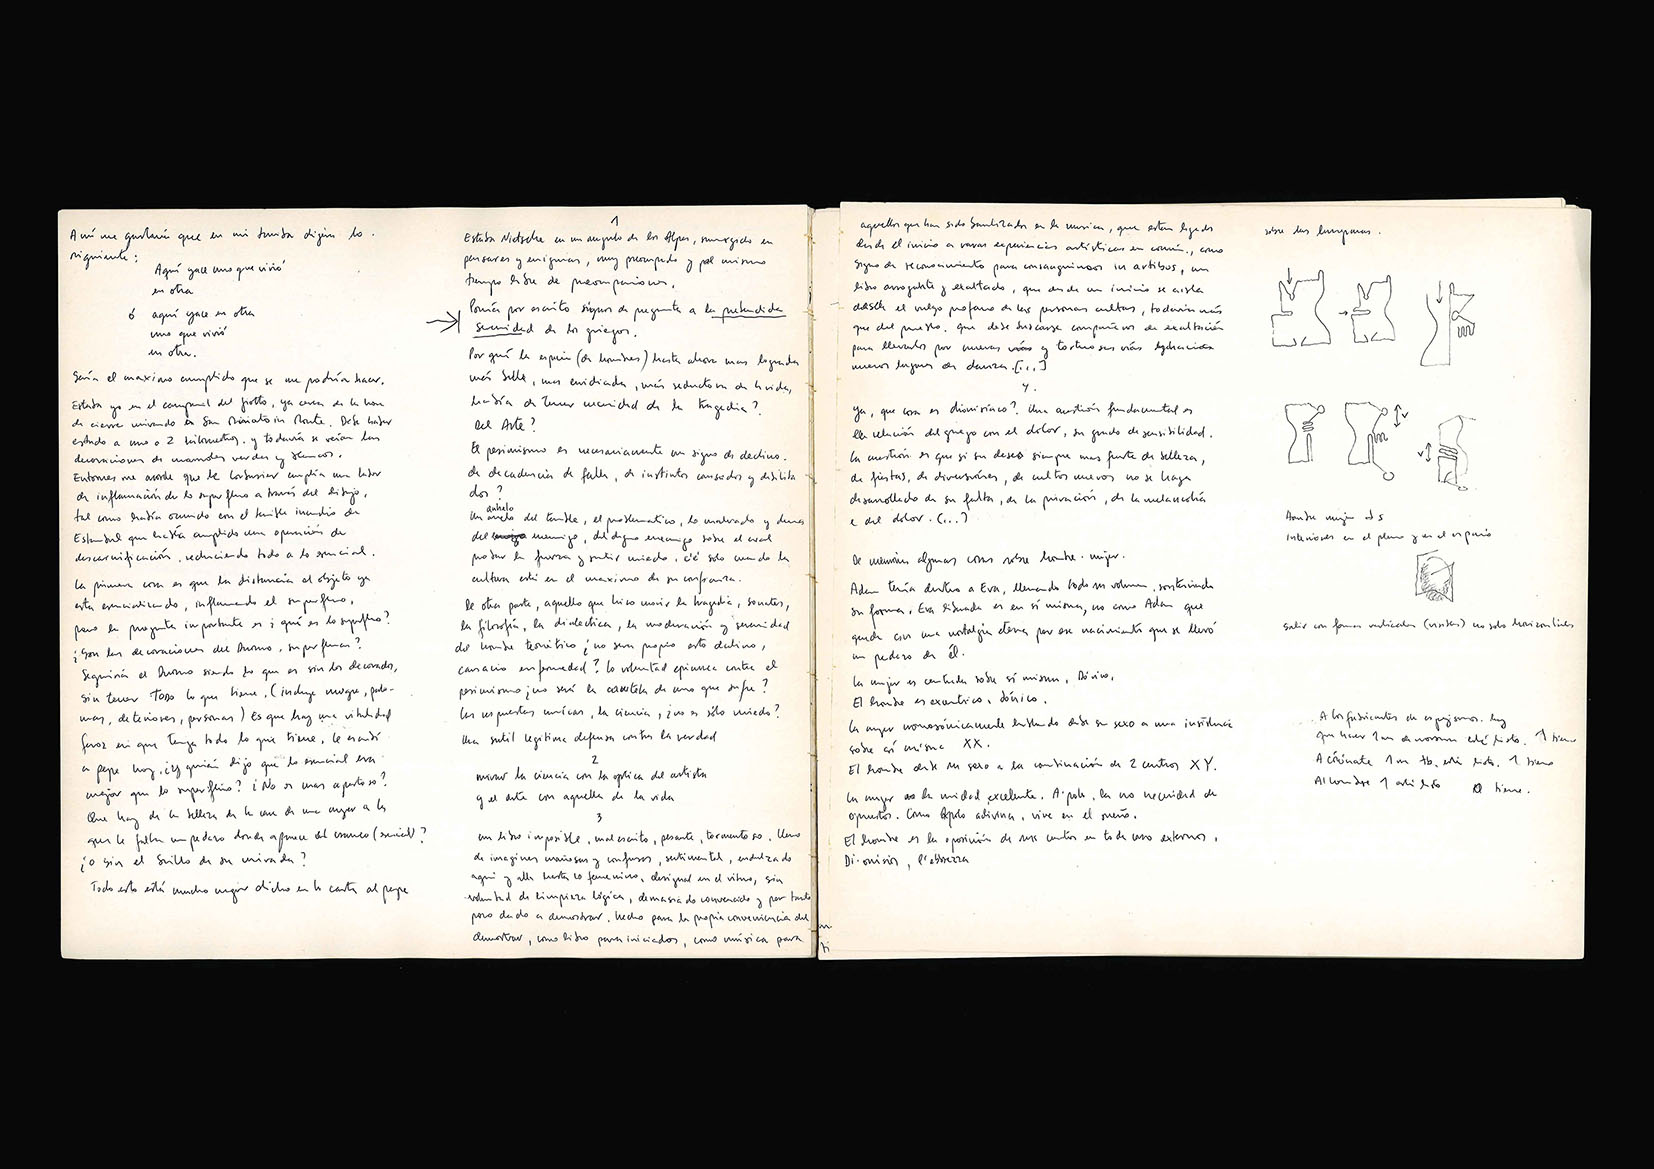 A mí me gustaría que en mi tumba dijera lo
siguiente:
Aquí yace uno que vivió
en otra
ó aquí yace en otra
uno que vivió
en otra.
Sería el maximo cumplido que se me podría hacer.
Estaba yo en el campanil del Giotto, ya cerca de la hora
de cierre mirando en San Miniato in Monte. Debe haber
estado a uno o 2 kilometros. y todavía se veían las
decoraciones de marmoles verdes y blancos.
Entonces me acordé que Le Corbusier cumplía una labor
de inflamación de lo superfluo a través del dibujo,
tal como había ocurrido con el terrible incendio de
Estambul que había cumplido una operación de
descarnificación, reduciendo todo a lo esencial.
La primera cosa es que la distancia al objeto ya
esta esencializando, inflamando el superfluo,
pero la pregunta importante es ¿qué es lo superfluo?
¿Son las decoraciones del Duomo, superfluas?
Seguiría el Duomo siendo lo que es sin los decorados,
sin tener TODO lo que tiene, (incluye mugre, palo-
mas, deterioros, personas) Es que hay una vitalidad
feroz en que tenga todo lo que tiene, le escribí
a pepe hoy. ¿y quién dijo que lo esencial era
mejor que lo superfluo? ¿No es mas apestoso?
Que hay de la belleza de la cara de una mujer a la
que le falta un pedazo donde aparece el craneo (esencial)?
¿O sin el brillo de su mirada?
Todo esto está mucho mejor dicho en la carta al pepe
1
Estaba Nietsche en un angulo de los Alpes, sumergido en
pensares y enigmas, muy preocupado y al mismo
tiempo libre de preocupaciones.
Ponía por escrito signos de pregunta a la pretendida
serenidad de los griegos.
Por qué la especie (de hombres) hasta ahora mas lograda
más bella, mas envidiada, más seductora de la vida,
habría de tener necesidad de la tragedia?
Del Arte?
El pesimismo es necesariamente un signo de declino.
de decadencia de falla, de instintos cansados y debilita
dos?
anhelo
Un del terrible, el problematico, lo malvado y
del enemigo, del digno enemigo sobre el cual
probar la fuerza y sentir miedo. es solo cuando la
cultura está en el maximo de su confianza.
De otra parte, aquello que hizo morir la tragedia, socrates,
la filosofía, la dialectica, la moderación y serenidad
del hombre teorético ¿no sera propio esto declino,
cansacio enfermedad? la voluntad epicurea contra el
pesimismo ¿no será la cautela de uno que sufre?
Las respuestas unicas, la ciencia, ¿no es sólo miedo?
Una sutil legitima defensa contra la verdad
2
mirar la ciencia con la optica del artista
y el arte con aquella de la vida
3
un libro imposible, mal escrito, pesante, tormentoso. lleno
de imagenes maniosas y confusas, sentimental, endulzado
aqui y alla hasta lo femenino, desigual en el ritmo, sin
voluntad de limpieza lógica, demasiado convencido y por tanto
poco dado a demostrar. hecho para la propia conveniencia del
demostrar, como libro para iniciados, como música para
aquellos que han sido bautizados en la musica, que estan ligados
desde el inicio a raras experiencias artisticas en común, como
signo de reconocimiento para consanguineos in artibus, un
libro arrogante y exaltado, que desde un inicio se aisla
desde el vulgo profano de las personas cultas, todavía más
que del pueblo. que debe buscarse compañeros de exaltación
para llevarlos por nuevas y tortuosas vías
nuevos lugares de danza. [...]
4.
Ya, que cosa es dionisíaco? Una cuestión fundamental es
la relación del griego con el dolor, su grado de sensibilidad.
la cuestión es que si su deseo siempre mas fuerte de belleza,
de fiestas, de diversiones, de cultos nuevos no se haya
desarrollado de su falta, de la privación, de la melancolía
e del dolor. (...)
De memoria algunas cosas sobre hombre · mujer.
Adan tenía dentro a Eva, llenando todo su volumen, sosteniendo
su forma, Eva liberada es en sí misma, no como Adan que
queda con una nostalgia eterna por ese nacimiento que se llevó
un pedazo de él.
La mujer es centrada sobre sí misma, Dórica,
El hombre es excentrico, Jónico.
La mujer cromosómicamente hablando debe su sexo a una insistencia
sobre sí misma XX.
El hombre debe su sexo a la combinación de 2 centros XY.
La mujer es la unidad, excelente. A-polo, la no necesidad de
opuestos. Como Apolo adivina, vive en el sueño.
El hombre es la oposición de sus centros en todo caso externos,
Di-onisios, l'ebbrezza
sobre las lamparas.
v
v
Hombre mujer
interiores en el plano y en el espacio
salir con formas verticales (visitas) no solo horizontales
A los fabricantes de espejismos. hay
que hacer 1 está listo. 1 tiene
A 1 tb. está lista. 1 tiene
Al hombre 1 está listo 0 tiene.